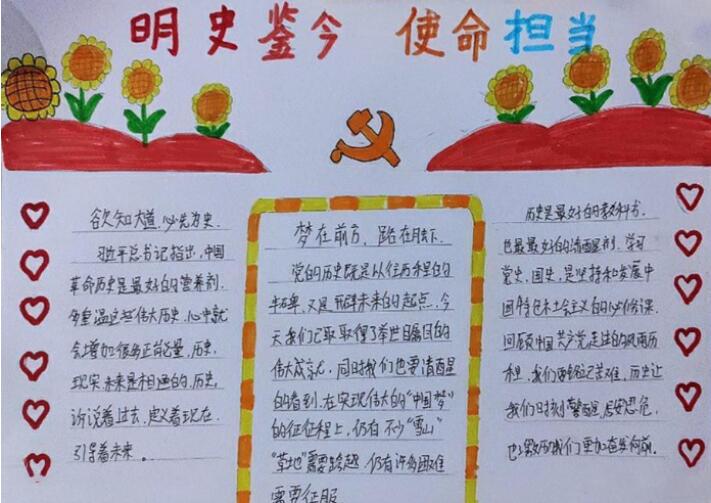 明史鉴今 使命担当
欲知大道,必先为史.
习近平总书记指出,中国
革命历史是最好的营养剂.
多重温这些伟大历史,心中就
会增加很多正能量,历史,
现实,未来是相通的,历史,
诉说着过去,定义着现在.
引导着未来。
梦在前方,路在脚下.
党的历史既是以往历程的
丰碑,又是开辟未来的起点,今
天我们已取取得了举世瞩目的
伟大成就,同时我们也要清醒
的看到,在实现伟大的“中国梦”
的征程上,仍有不少“雪山”
“草地”需要跨越,仍有许多困难
需要征服
历史是最好的教科书.
也最最好的清醒剂,学习
党史,国史,是坚持和发展中
国特色社会主义的必修课.
回顾中国共产党走过的风雨历
程,我们要铭记苦难,历史让
我们时刻警醒,居安思危,
也激励我们更加奋发向前.